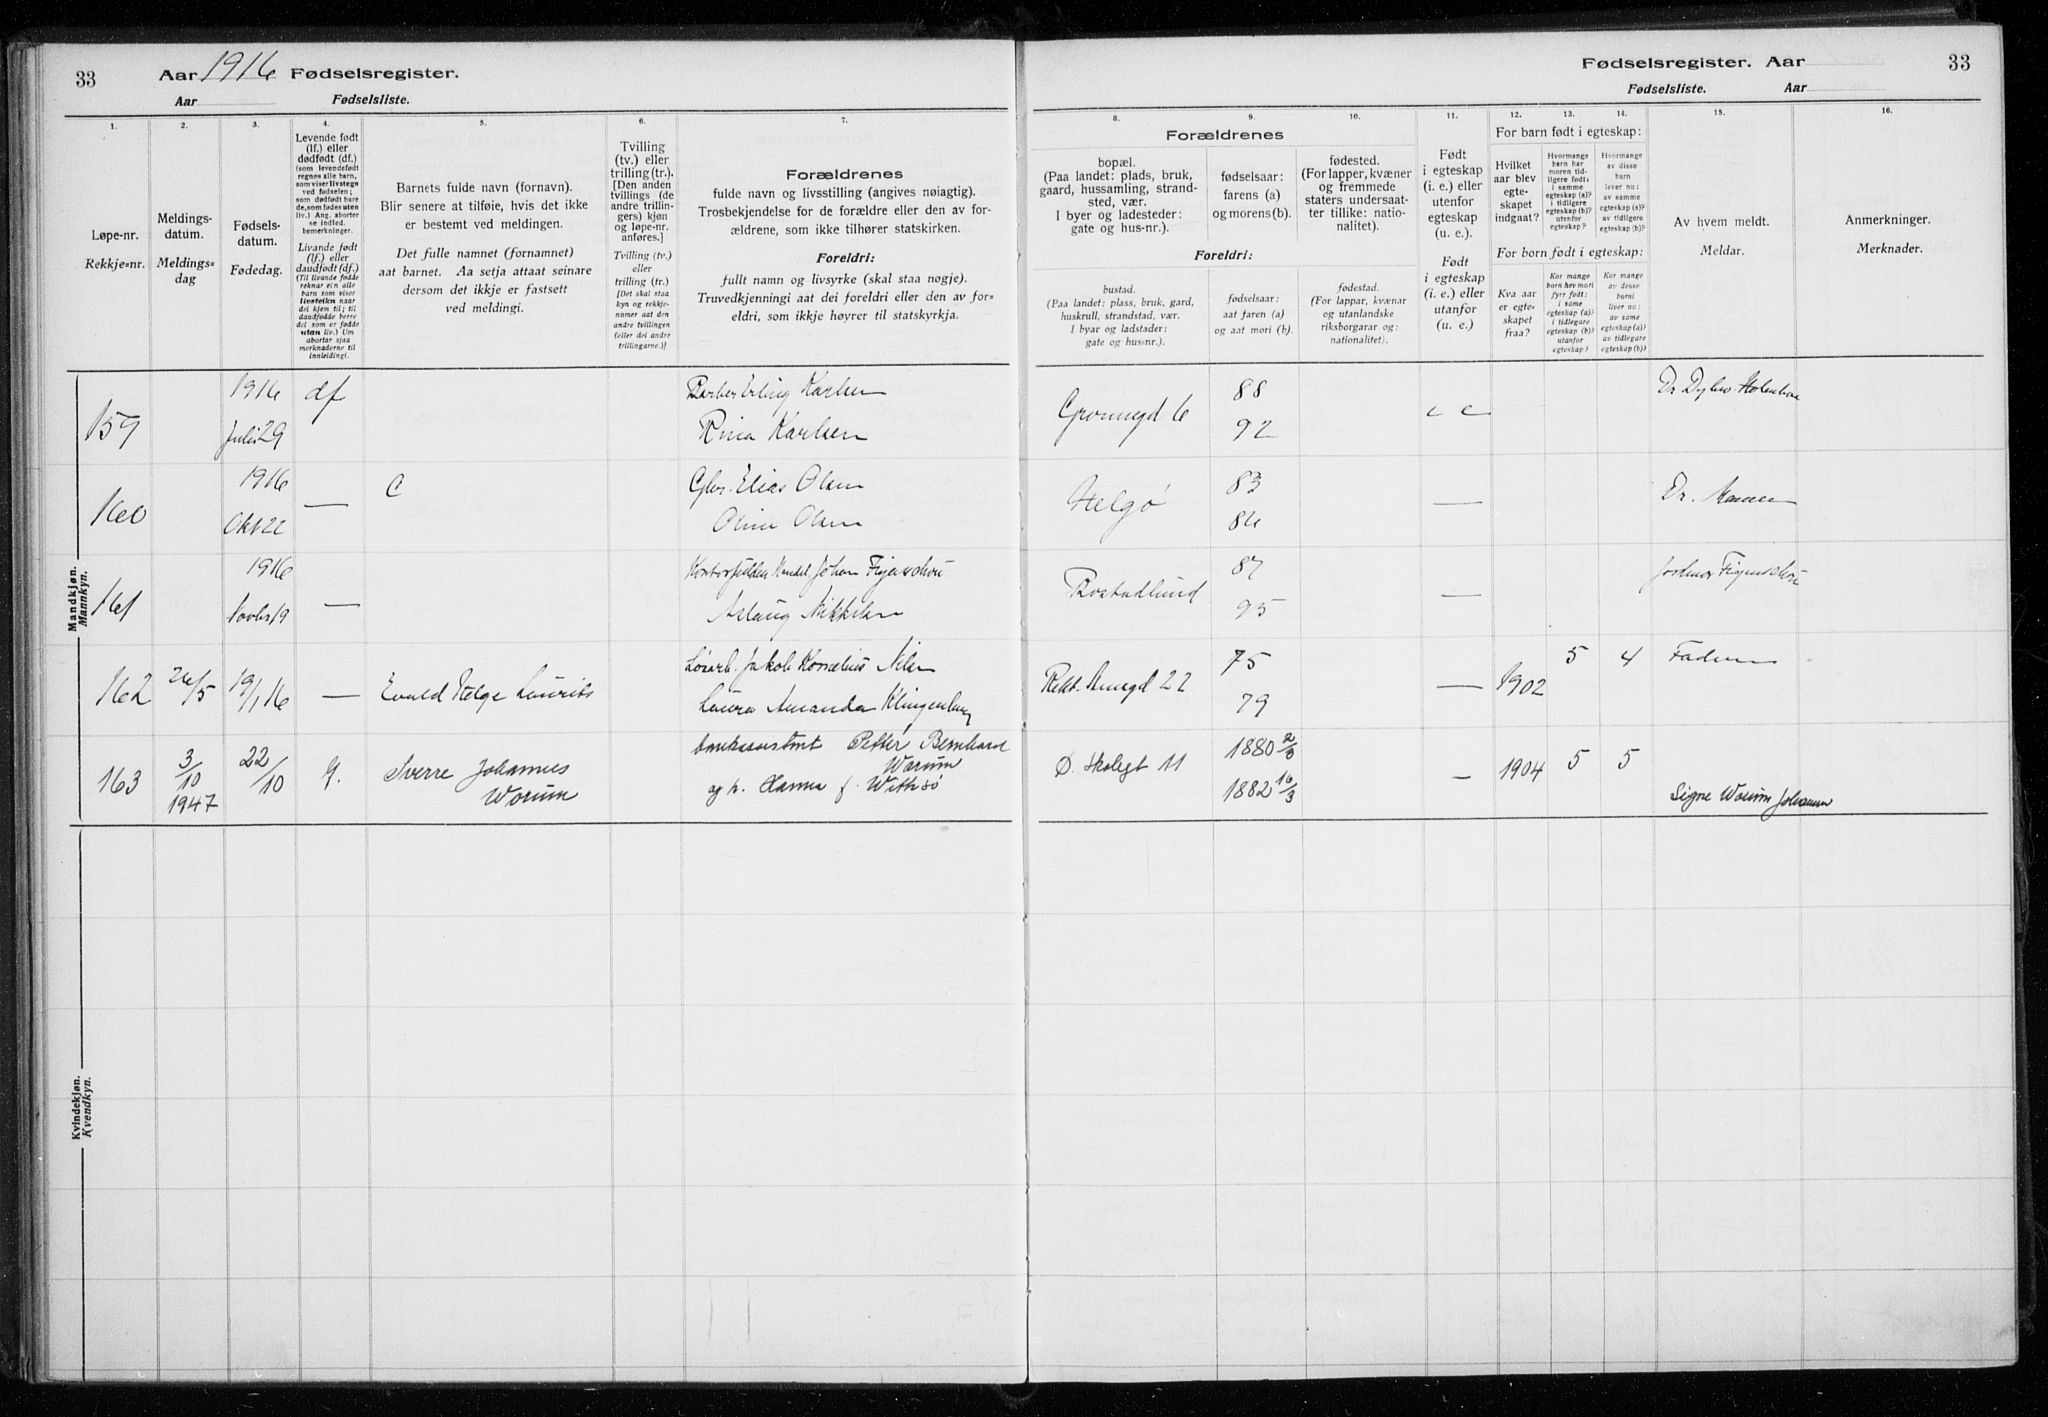 33 Aar 1916 Fødselsregister.
Aar Fødselsliste.
1. 2. 3. 4. 5. 6. 7.
Løpe-nr.
Rekkje-nr.
Meldings-
datum.
Meldings-
dag
Fødsels-
datum.
Fødedag.
Levende født
(lf.) eller
dødfødt (df.)
(som levendefødt
regnes alle barn,
som viser livstegn
ved fødselen;
som dødfødt bare
de, som fødes uten
liv.) Ang. aborter
se indled.
bemerkninger.
Livande født
(lf.) eller
daudfødt (df.)
(Til livande fødde
reknar ein alle
barn som viser
livsteikn naar
dei kjem til; til
daudfødde berre
dei som er fødde
utan liv.) Um
abortar sjaa
merknaderne til
innleidingi.
Barnets fulde navn (fornavn).
Blir senere at tilføie, hvis det ikke
er bestemt ved meldingen.
Det fulle namnet (fornamnet)
aat barnet. Aa setja attaat seinare
dersom det ikkje er fastsett
ved meldingi.
Tvilling
(tv.) eller
trilling (tr.).
[Den anden
tvillings (de
andre trillin-
gers) kjøn
og løpe-nr.
anføres.]
Tvilling (tv.)
eller
trilling (tr.)
[Det skal staa
kyn og rekkje-
numer aat den
andre tvillingen
(eller dei andre
trillingarne.)]
Forældrenes
fulde navn og livsstilling (angives nøiagtig).
Trosbekjendelse for de forældre eller den av for-
ældrene, som ikke tilhører statskirken.
Foreldri:
fullt namn og livsyrke (skal staa nøgje).
Truvedkjenningi aat dei foreldri eller den av for-
eldri, som ikkje høyrer til statskyrkja.
Mandkjøn.
Mannkyn.
159 1916 Juli 29 df Barber Erling Karlsen
Rina Karlsen
160 1916 Okt 22 — C Elias Olsen
Olina Olsen
161 1916 Novbr 19 — Johan Figenschou
Aslaug Nikkelsen
162 26/5 19/1 16 — Evald Helge Laurits Jakob Kornelius Nilsen
Laura Amanda Klingenberg
163 3/10 1947 22/10 Sverre Johannes
Worum
Petter Bernhard
Worum
og h. Hanna f. Withsø
Kvindekjøn.
Kvendkyn.
Fødselsregister. Aar 33
Fødselsliste. Aar
8. 9. 10. 11. 12. 13. 14. 15. 16.
Forældrenes
bopæl.
(Paa landet: plads, bruk,
gaard, hussamling, strand-
sted, vær.
I byer og ladesteder:
gate og hus-nr.).
fødselsaar:
farens (a)
og morens (b).
fødested.
(For lapper, kvæner
og fremmede
staters undersaat-
ter tillike: natio-
nalitet).
Foreldri:
bustad.
(Paa landet: plass, bruk, gard,
huskrull, strandstad, vær.
I byar og ladstader:
gate og hus-nr.).
fødselsaar:
aat faren (a)
og aat mori (b).
fødestad.
(For lappar, kvænar
og utanlandske
riksborgarar og:
nationalitet).
Født
i egteskap
(i. e.) eller
utenfor
egteskap
(u. e.).
Født
i egteskap
(i. e.) eller
utanfor
(u. e.)
For barn født i egteskap:
Hvilket
aar blev
egte-
skapet
indgaat?
Hvormange
barn har
moren tid-
ligere født:
i samme
egteskap (a)?
i tidligere
egteskap (b)?
utenfor
egteskap?
Hvormange
av disse
barn
lever nu:
av samme
egteskap (a)?
av tidligere
egteskap (b)?
For born født i egteskap:
Kva aar
er egte-
skapet
fraa?
Kor mange
barn hev mori
fyrr født:
i same
egteskap (a)?
i tidlegare
egteskap (b)?
utanfor
egteskap?
Kor mange
av desse
borni
liver no:
av same
egteskap (a)?
av tidlegare
egteskap (b)?
Av hvem meldt.
Meldar.
Anmerkninger.
Merknader.
Grønnegd 6 88 92
Helgø 83 86 — Dr.
87 95 — Figenschou
22 75 79 — 1902 5 4 Faderen
Ø. Skolegt 11 1880 2/3 1882 16/3 — 1904 5 5
Signe Worum Johansen